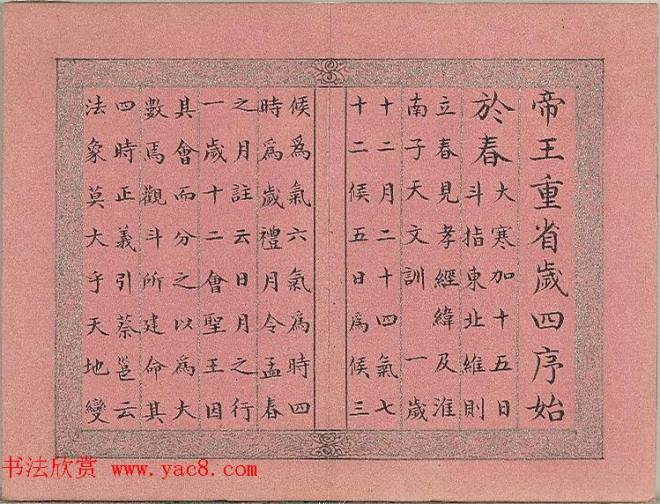 帝王重省歲四序始
於春
大寒加十五日
斗指東北維則
立春見孝經緯及淮
南子天文訓 一歲
十二月二十四氣七
十二候五日爲候三
候爲氣六氣爲時四
時爲歲禮月令孟春
之月註云日月之行
一歲十二會聖王因
其會而分之以爲大
數焉觀斗所建命其
四時正義引蔡邕云
法象莫大乎天地變
书法欣赏 www.yac8.com